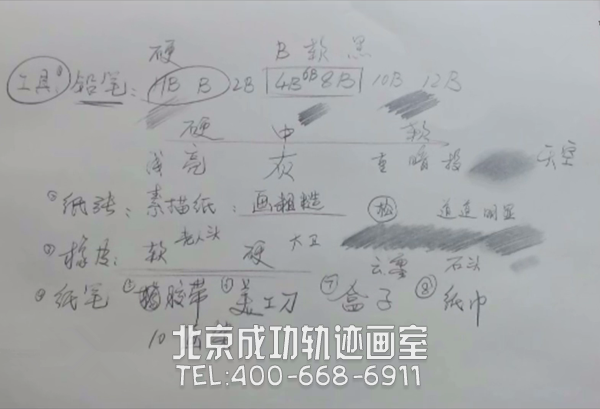 硬 B 软 黑
工具① 铅笔: HB B 2B 4B 6B 8B 10B 12B
硬 中 软
浅 亮 灰 重 暗 投 天空
②纸张: 素描纸: 画粗糙 松 道道明显
③橡皮: 软 老人头 硬 大卫 云层 石头
④纸笔 ⑤胶带 ⑥美工刀 ⑦盒子 ⑧纸巾
10
北京成功轨迹画室
TEL:400-668-6911